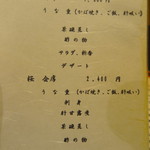 うな重(かば焼き、ご飯、肝吸い)
茶碗蒸し
酢の物
サラダ、新香
デザート
桜 会席 2,400円
うな重(かば焼き、ご飯、肝吸い)
刺身
肝甘露煮
茶碗蒸し
酢の物